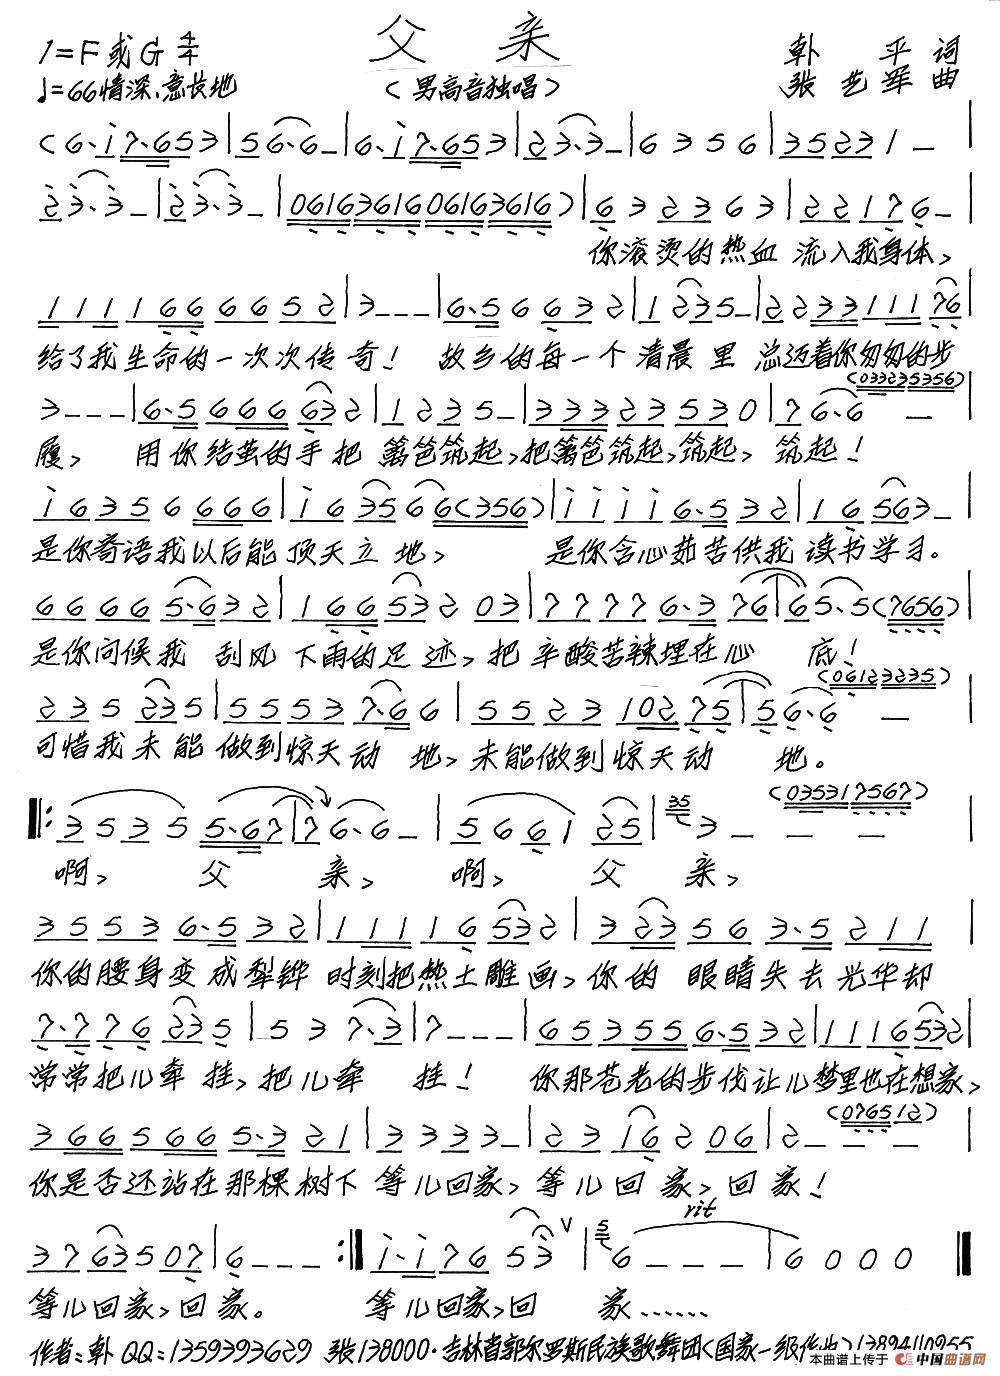 父 亲
1=F或G 4/4
卧 平 词
♩=66情深、意长地
（男高音独唱）
张艺军 曲
(6·i7·653|56·6-|6·i7·653|23·3-|6356|35231-|
23·3-|23·3-|0616361606163616)|632363|22176-|
你滚烫的热血 流入我身体，
1111666652|3---|6·56632|1235-|223311176|
给了我生命的一次次传奇！ 故乡的每一个清晨里 总迈着你匆匆的步
(033235356)
3---|6·5666632|1235-|33323530|76·6-
履， 用你结茧的手把 篱笆筑起，把篱笆筑起，筑起， 筑起！
i6356666|i63566(356)|iiii6·532|16563-
是你寄语我以后能顶天立地， 是你含心茹苦供我读书学习。
66665·632|16653203|77776·376|65·5(7656)|
是你问候我 刮风下雨的足迹，把辛酸苦辣埋在心 底！
(06123235)
235235|55537·66|552310275|56·6-|
可惜我未能做到惊天动 地，未能做到惊天动 地。
(035317567)
‖:35355·67|76·6-|566125|35 3---|
啊， 父 亲， 啊， 父 亲，
35536·532|11116532|323563·5211|
你的腰身变成犁铧 时刻把热土雕画，你的 眼睛失去光华却
7·776235|537·3|7---|653556·532|1116532|
常常把儿牵挂，把儿牵 挂！ 你那苍老的步伐让儿梦里也在想家，
(076512)
3665665·321|3333-|2316206|2---|
你是否还站在那棵树下 等儿回家，等儿回家，回家！
rit
3763507|6---:‖i·i7653∨|5 6---|6000‖
等儿回家，回家。 等儿回家，回 家……
作者：卧 QQ：1359393629 张138000·吉林省郭尔罗斯民族歌舞团(国家一级作曲)13894110955
本曲谱上传于 中国曲谱网